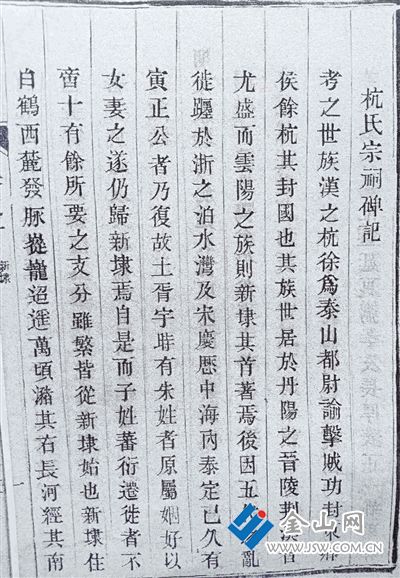 杭氏宗祠碑記
考之世族漢之杭徐爲泰山都尉諭擊賊功封東鄉
侯餘杭其封國也其族世居於丹陽之晉陵荆溪者
尤盛而雲陽之族則新埭其首著焉後因五 亂
徙躔於浙之泊水灣及宋慶歷中海內泰定已久有
寅正公者乃復故土胥宇時有朱姓者原屬姻好以
女妻之遂仍歸新埭焉自是而子姓蕃衍遷徙者不
啻十有餘所要之支分雖繁皆從新埭始也新埭住
白鶴西麓發脉嵸巃迢遞萬頃潞其右長河經其南
金山网
WWW.JSW.COM.CN